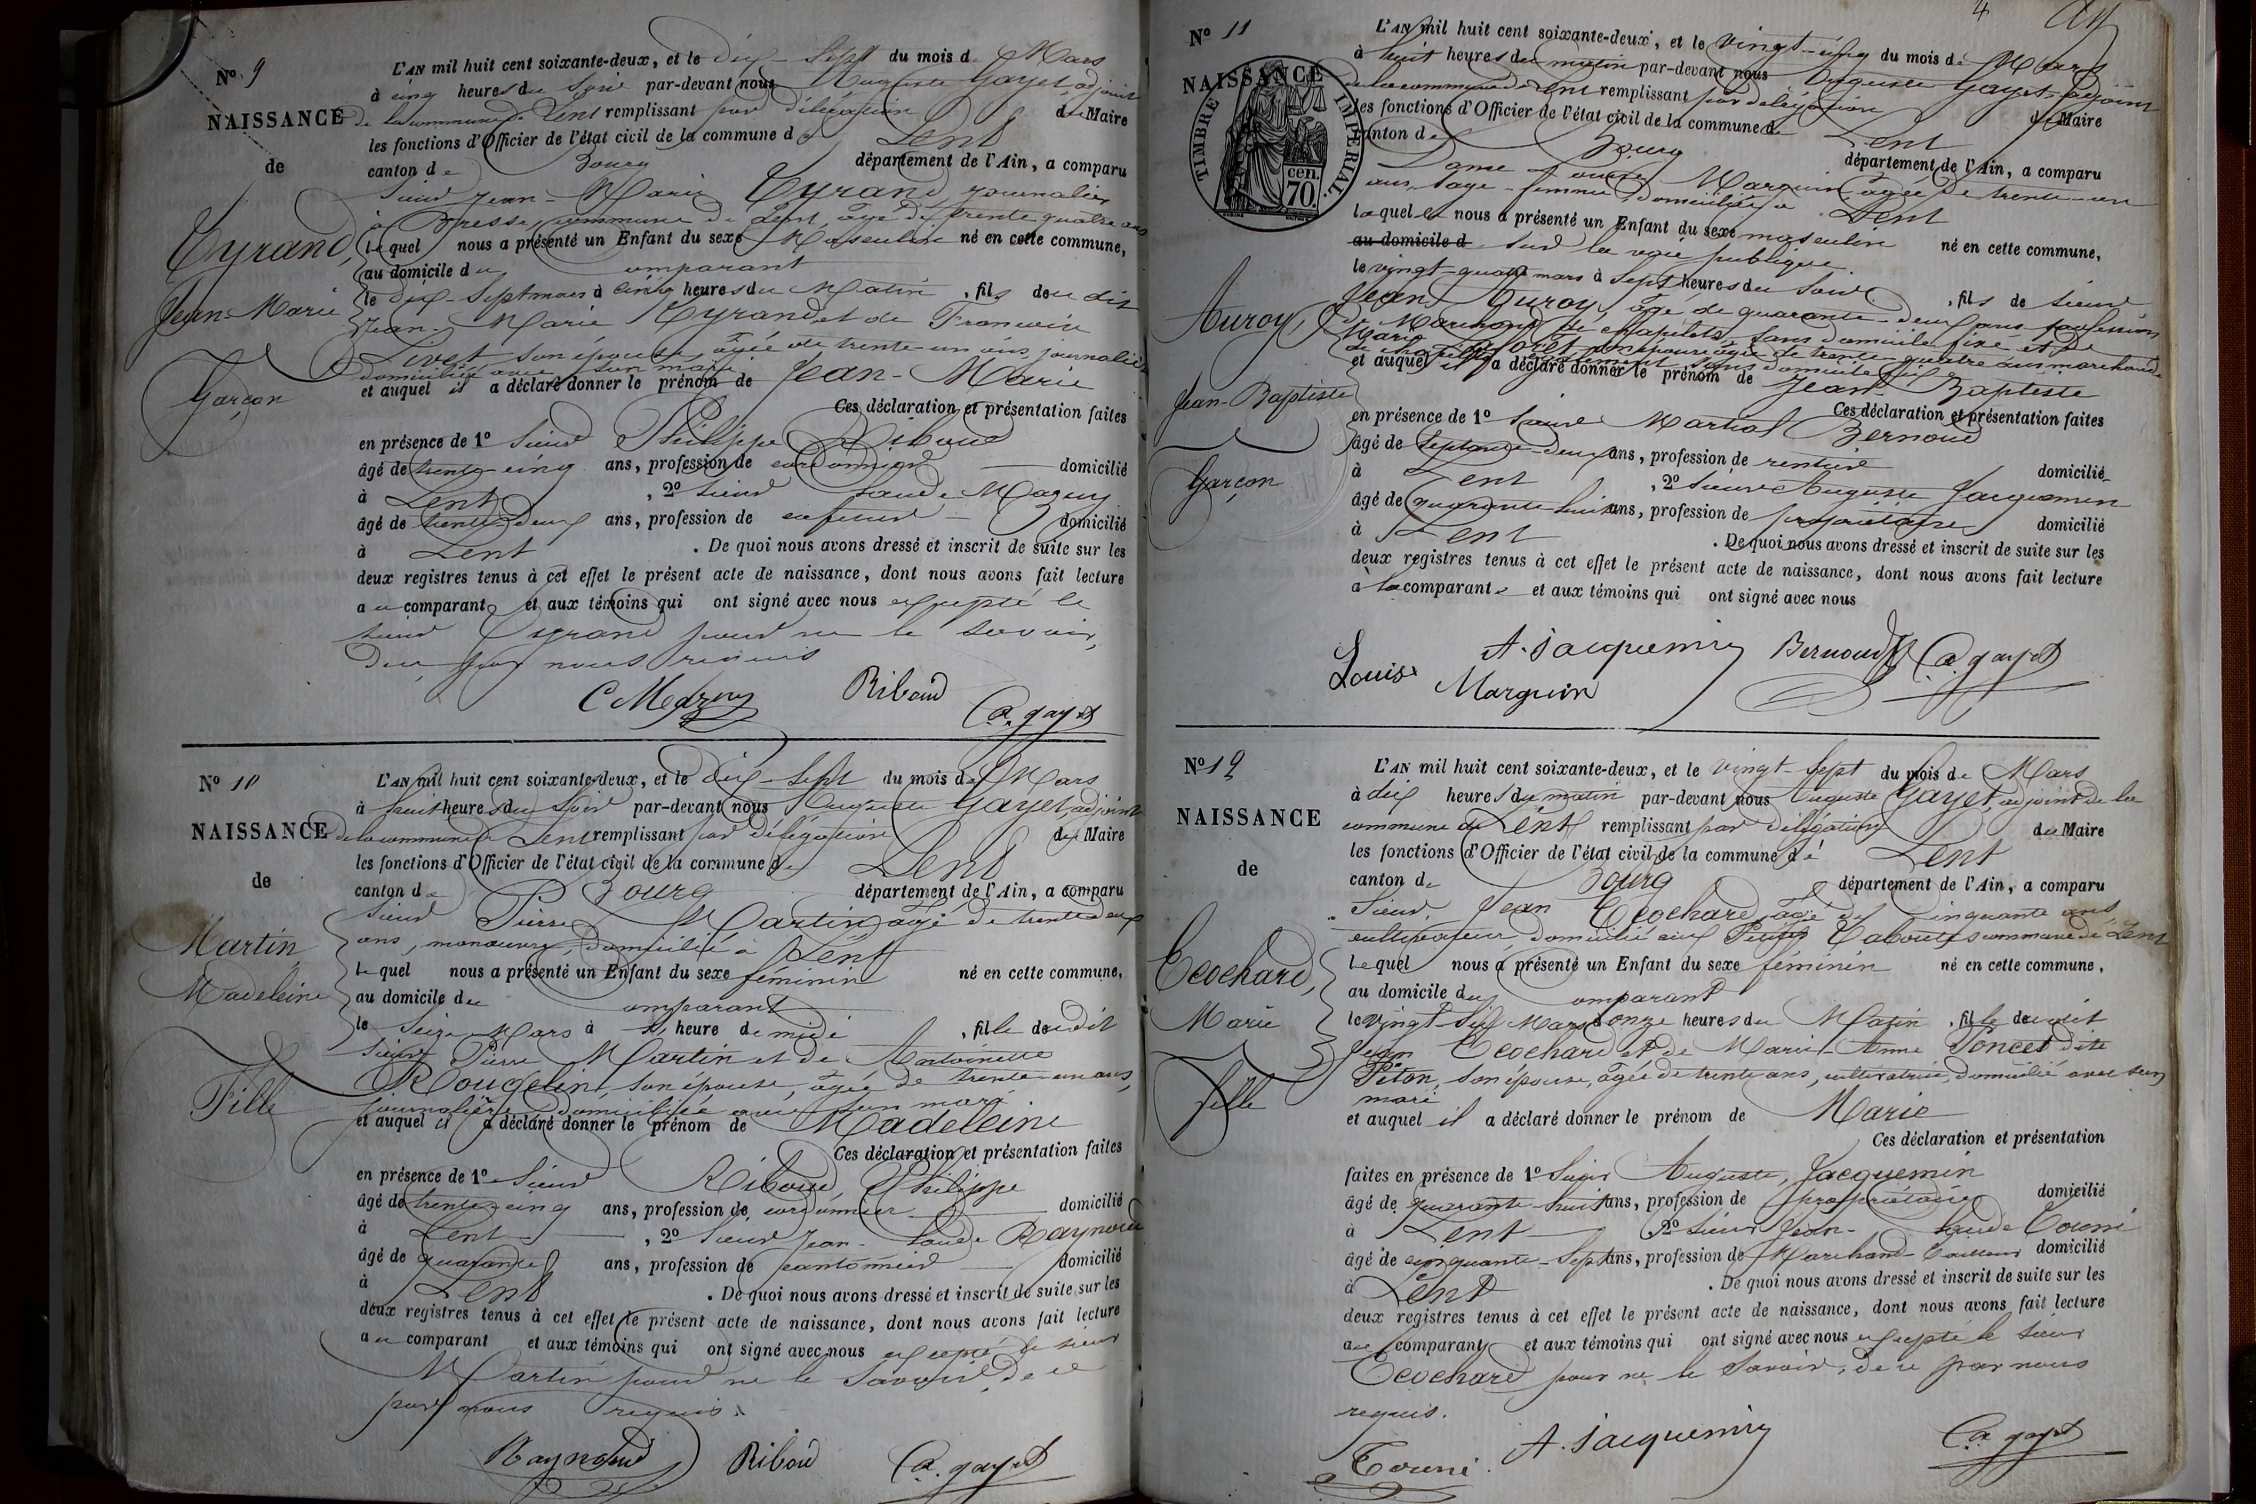 No 9
NAISSANCE
de
Tyrand,
Jean-Marie
Garçon
L'AN mil huit cent soixante-deux, et le dix-sept du mois de Mars
à cinq heures du soir par-devant nous Auguste Gayet, adjoint
de la commune de Lent remplissant par délégation du Maire
les fonctions d'Officier de l'état civil de la commune de Lent
canton de Bourg département de l'Ain, a comparu
Sieur Jean-Marie Tyrand, journalier
à Bresse commune de Lent, âgé de trente quatre ans
lequel nous a présenté un Enfant du sexe Masculin né en cette commune,
au domicile du comparant
le dix-sept mars à cinq heures du Matin, fils de du dit
Jean-Marie Tyrand et de Françoise
Livet son épouse, âgée de trente-un ans, journalière
domiciliée avec son mari
et auquel il a déclaré donner le prénom de Jean-Marie
Ces déclaration et présentation faites
en présence de 1o Sieur Philippe Riboud
âgé de trente-cinq ans, profession de cordonnier domicilié
à Lent, 2o Sieur Claude Mazuy
âgé de trente-deux ans, profession de domicilié
à Lent. De quoi nous avons dressé et inscrit de suite sur les
deux registres tenus à cet effet le présent acte de naissance, dont nous avons fait lecture
au comparant et aux témoins qui ont signé avec nous excepté le
sieur Tyrand pour ne le savoir,
de ce par nous requis
C Mazuy Riboud A. gayet
No 10
NAISSANCE
de
Martin
Madeleine
Fille
L'AN mil huit cent soixante-deux, et le dix-sept du mois de Mars
à huit heures du soir par-devant nous Auguste Gayet, adjoint
de la commune de Lent remplissant par délégation du Maire
les fonctions d'Officier de l'état civil de la commune de Lent
canton de Bourg département de l'Ain, a comparu
Sieur Pierre Martin âgé de trente deux
ans, manœuvre, domicilié à Lent
lequel nous a présenté un Enfant du sexe féminin né en cette commune,
au domicile du comparant
le seize Mars à l'heure de midi, fille de du dit
sieur Pierre Martin et de Antoinette
Rougelin, son épouse, âgée de trente-un ans,
journalière domiciliée avec son mari
et auquel il a déclaré donner le prénom de Madeleine
Ces déclaration et présentation faites
en présence de 1o Sieur Riboud, Philippe
âgé de trente-cinq ans, profession de cordonnier domicilié
à Lent, 2o Sieur Jean-Claude Raynoud
âgé de quarante ans, profession de cantonnier domicilié
à Lent. De quoi nous avons dressé et inscrit de suite sur les
deux registres tenus à cet effet le présent acte de naissance, dont nous avons fait lecture
au comparant et aux témoins qui ont signé avec nous excepté le sieur
Martin pour ne le savoir, de ce
par nous requis.
Raynoud Riboud A. gayet
4
No 11
NAISSANCE
TIMBRE IMPERIAL.
cen.
70.
Auroy,
Jean-Baptiste
Garçon
L'AN mil huit cent soixante-deux, et le vingt-cinq du mois de Mars
à huit heures du matin par-devant nous Auguste Gayet, adjoint
de la commune de Lent remplissant par délégation du Maire
les fonctions d'Officier de l'état civil de la commune de Lent
canton de Bourg département de l'Ain, a comparu
Dame Louise Marguin âgée de trente-un
ans, sage-femme, domiciliée à Lent
laquelle nous a présenté un Enfant du sexe masculin né en cette commune,
au domicile d sur la voie publique.
le vingt-quatre mars à sept heures du soir, fils de sieur
Jean Auroy, âgé de quarante-deux ans profession
de Marchand de chapelets, sans domicile fixe et de
Marie son épouse âgée de trente-quatre ans marchande
de chapelets également sans domicile fixe
et auquel il a déclaré donner le prénom de Jean Baptiste
Ces déclaration et présentation faites
en présence de 1o Sieur Martial Bernoud
âgé de septante-deux ans, profession de rentier domicilié
à Lent, 2o Sieur Auguste Jacquemin
âgé de quarante-huit ans, profession de propriétaire domicilié
à Lent. De quoi nous avons dressé et inscrit de suite sur les
deux registres tenus à cet effet le présent acte de naissance, dont nous avons fait lecture
à la comparante et aux témoins qui ont signé avec nous
A. Jacquemin Bernoud A. gayet
Louise Marguin
No 12
NAISSANCE
de
Cochard,
Marie
fille
L'AN mil huit cent soixante-deux, et le vingt-sept du mois de Mars
à dix heures du matin par-devant nous Auguste Gayet adjoint de la
commune de Lent remplissant par délégation du Maire
les fonctions d'Officier de l'état civil de la commune de Lent
canton de Bourg département de l'Ain, a comparu
Sieur Jean Cochard, âgé de cinquante ans
cultivateur domicilié aux Petits commune de Lent
lequel nous a présenté un Enfant du sexe féminin né en cette commune,
au domicile du comparant
le vingt-six Mars à onze heures du Matin, fille de du dit
Jean Cochard et de Marie-Anne Poncet dite
Piton, son épouse, âgée de trente ans, cultivatrice, domicilié avec son
mari
et auquel il a déclaré donner le prénom de Marie
Ces déclaration et présentation
faites en présence de 1o Sieur Auguste, Jacquemin
âgé de quarante-huit ans, profession de propriétaire domicilié
à Lent 2o sieur Jean-Claude Tourni
âgé de cinquante-sept ans, profession de Marchand-Tailleur domicilié
à Lent. De quoi nous avons dressé et inscrit de suite sur les
deux registres tenus à cet effet le présent acte de naissance, dont nous avons fait lecture
au comparant et aux témoins qui ont signé avec nous excepté le sieur
Cochard pour ne le savoir, de ce par nous
requis.
Tourni A. Jacquemin A. gayet